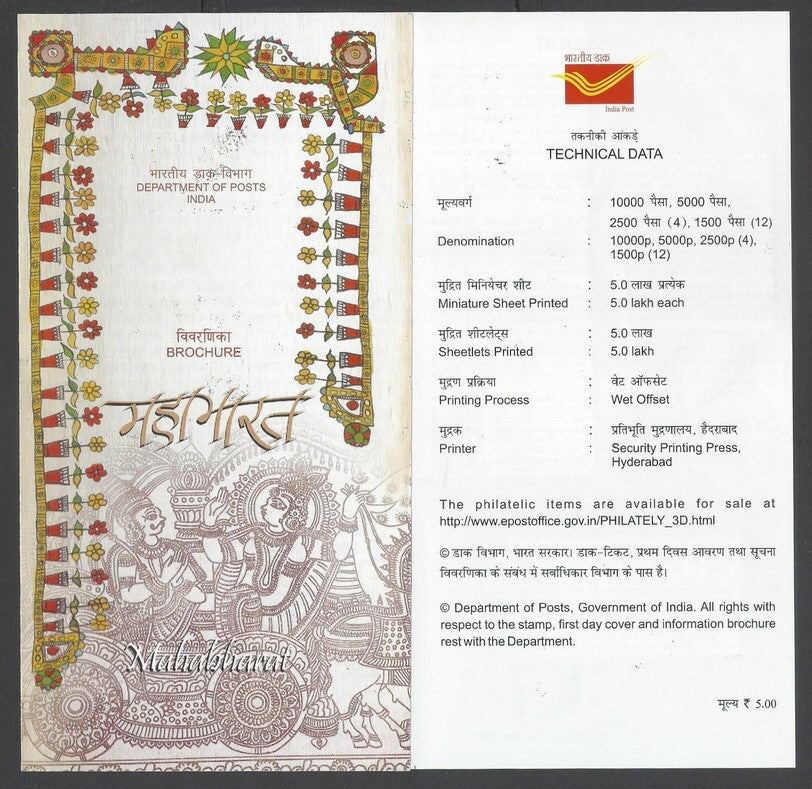 भारतीय डाक-विभाग
DEPARTMENT OF POSTS
INDIA
विवरणिका
BROCHURE
महाभारत
Mahabharat
भारतीय डाक
India Post
तकनीकी आंकड़े
TECHNICAL DATA
मूल्यवर्ग : 10000 पैसा, 5000 पैसा,
2500 पैसा (4), 1500 पैसा (12)
Denomination : 10000p, 5000p, 2500p (4),
1500p (12)
मुद्रित मिनियेचर शीट : 5.0 लाख प्रत्येक
Miniature Sheet Printed : 5.0 lakh each
मुद्रित शीटलेट्स : 5.0 लाख
Sheetlets Printed : 5.0 lakh
मुद्रण प्रक्रिया : वेट ऑफसेट
Printing Process : Wet Offset
मुद्रक : प्रतिभूति मुद्रणालय, हैदराबाद
Printer : Security Printing Press,
Hyderabad
The philatelic items are available for sale at
http://www.epostoffice.gov.in/PHILATELY_3D.html
© डाक विभाग, भारत सरकार। डाक-टिकट, प्रथम दिवस आवरण तथा सूचना
विवरणिका के संबंध में सर्वाधिकार विभाग के पास है।
© Department of Posts, Government of India. All rights with
respect to the stamp, first day cover and information brochure
rest with the Department.
मूल्य ₹ 5.00